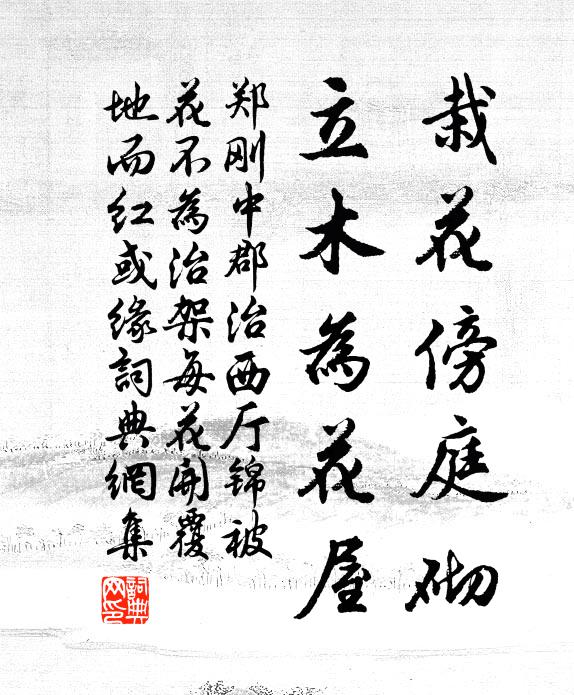 栽花傍庭砌
立木為花屋
郑刚中郡治西厅锦被
花不為治架每花開覆
地而红或缘詞典網集
詞典
网印